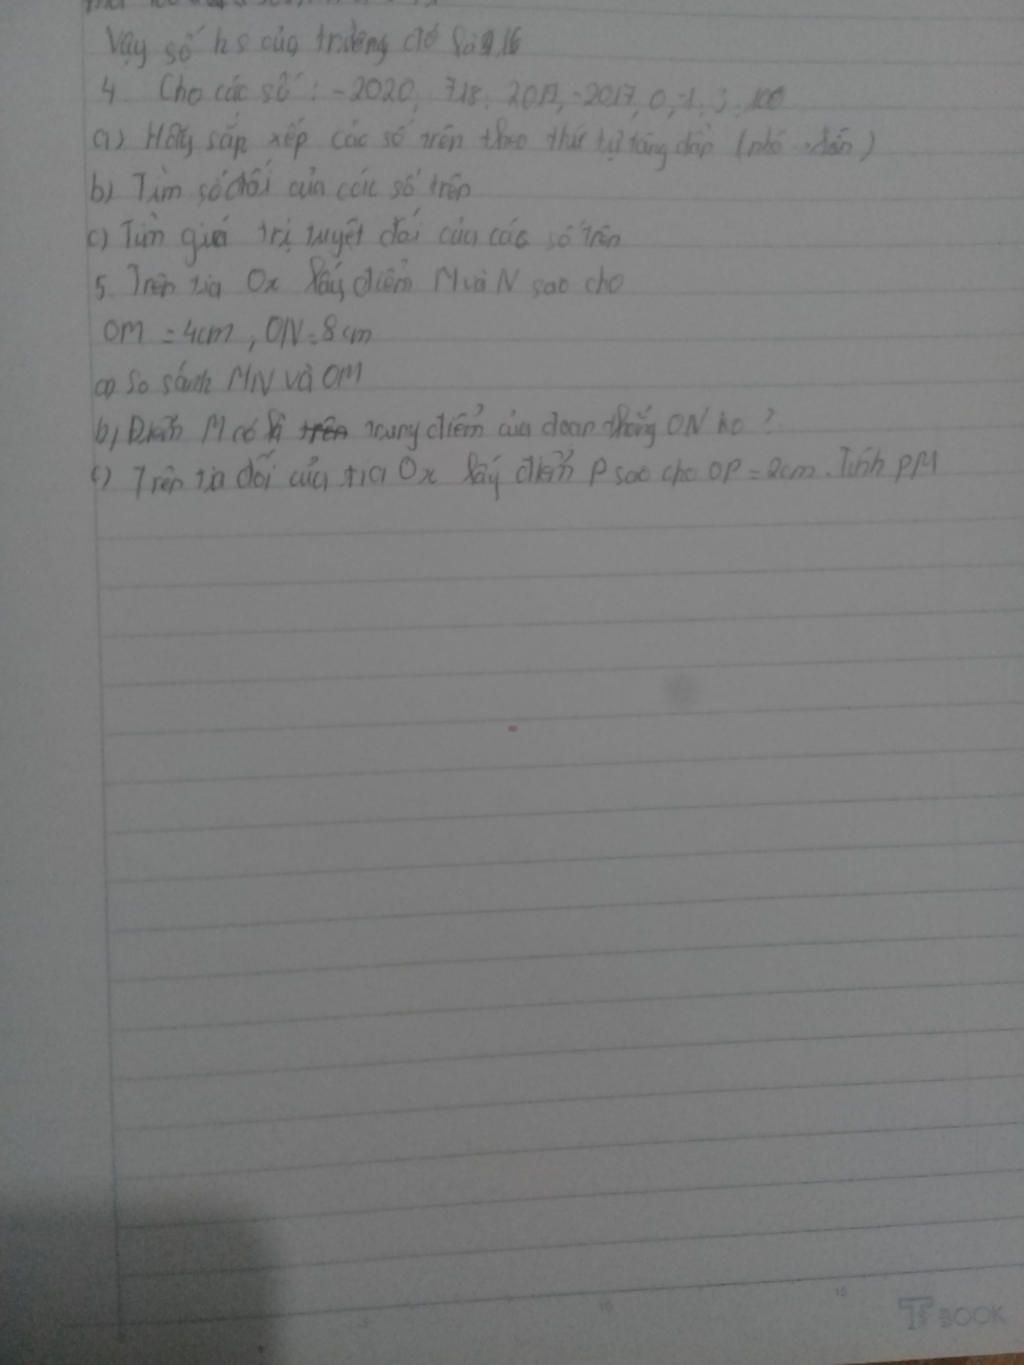 Vậy số hs của trường đó là 916
4. Cho các số : -2020, 718, 2019, -2017, 0, -1, 3, 100
a) Hãy sắp xếp các số trên theo thứ tự tăng dần (nhỏ → lớn)
b) Tìm số đối của các số trên
c) Tìm giá trị tuyệt đối của các số trên
5. Trên tia Ox lấy điểm M và N sao cho
OM = 4cm, ON = 8cm
a) So sánh MN và OM
b) Điểm M có là trên trung điểm của đoạn thẳng ON ko ?
c) Trên tia đối của tia Ox lấy điểm P sao cho OP = 2cm. Tính PM
5
10
15
TF BOOK